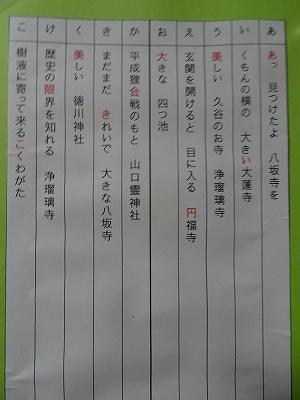 あ　あっ　見つけたよ　八坂寺を
い　くもんの横の　大きい大蓮寺
う　美しい　久谷のお寺　浄瑠璃寺
え　玄関を開けると　目に入る　円福寺
お　大きな　四つ池
か　平成狸合戦のもと　山口霊神社
き　まだまだ　きれいで　大きな八坂寺
く　美しい　徳川神社
け　歴史の限界を知れる　浄瑠璃寺
こ　樹液に寄って来るこくわがた